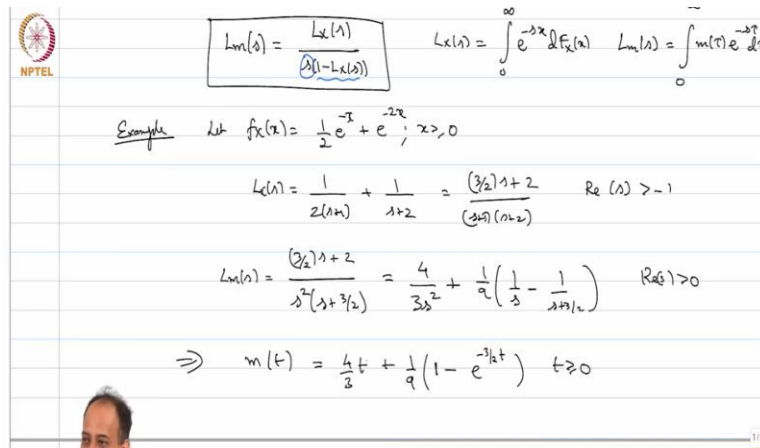 NPTEL
Lm(s) = Lx(s) / s(1-Lx(s))   Lx(s) = ∫₀^∞ e^{-sx} dFx(x)   Lm(s) = ∫₀^∞ m(τ) e^{-sτ} d
Example Let fx(x) = 1/2 e^{-x} + e^{-2x} ; x ≥ 0
Lx(s) = 1/2(s+1) + 1/s+2 = (3/2)s+2 / (s+1)(s+2)   Re(s) > -1
Lm(s) = (3/2)s+2 / s²(s+3/2) = 4/3s² + 1/9 (1/s - 1/s+3/2)   Re(s) > 0
⇒ m(t) = 4/3 t + 1/9 (1 - e^{-3/2 t})   t ≥ 0